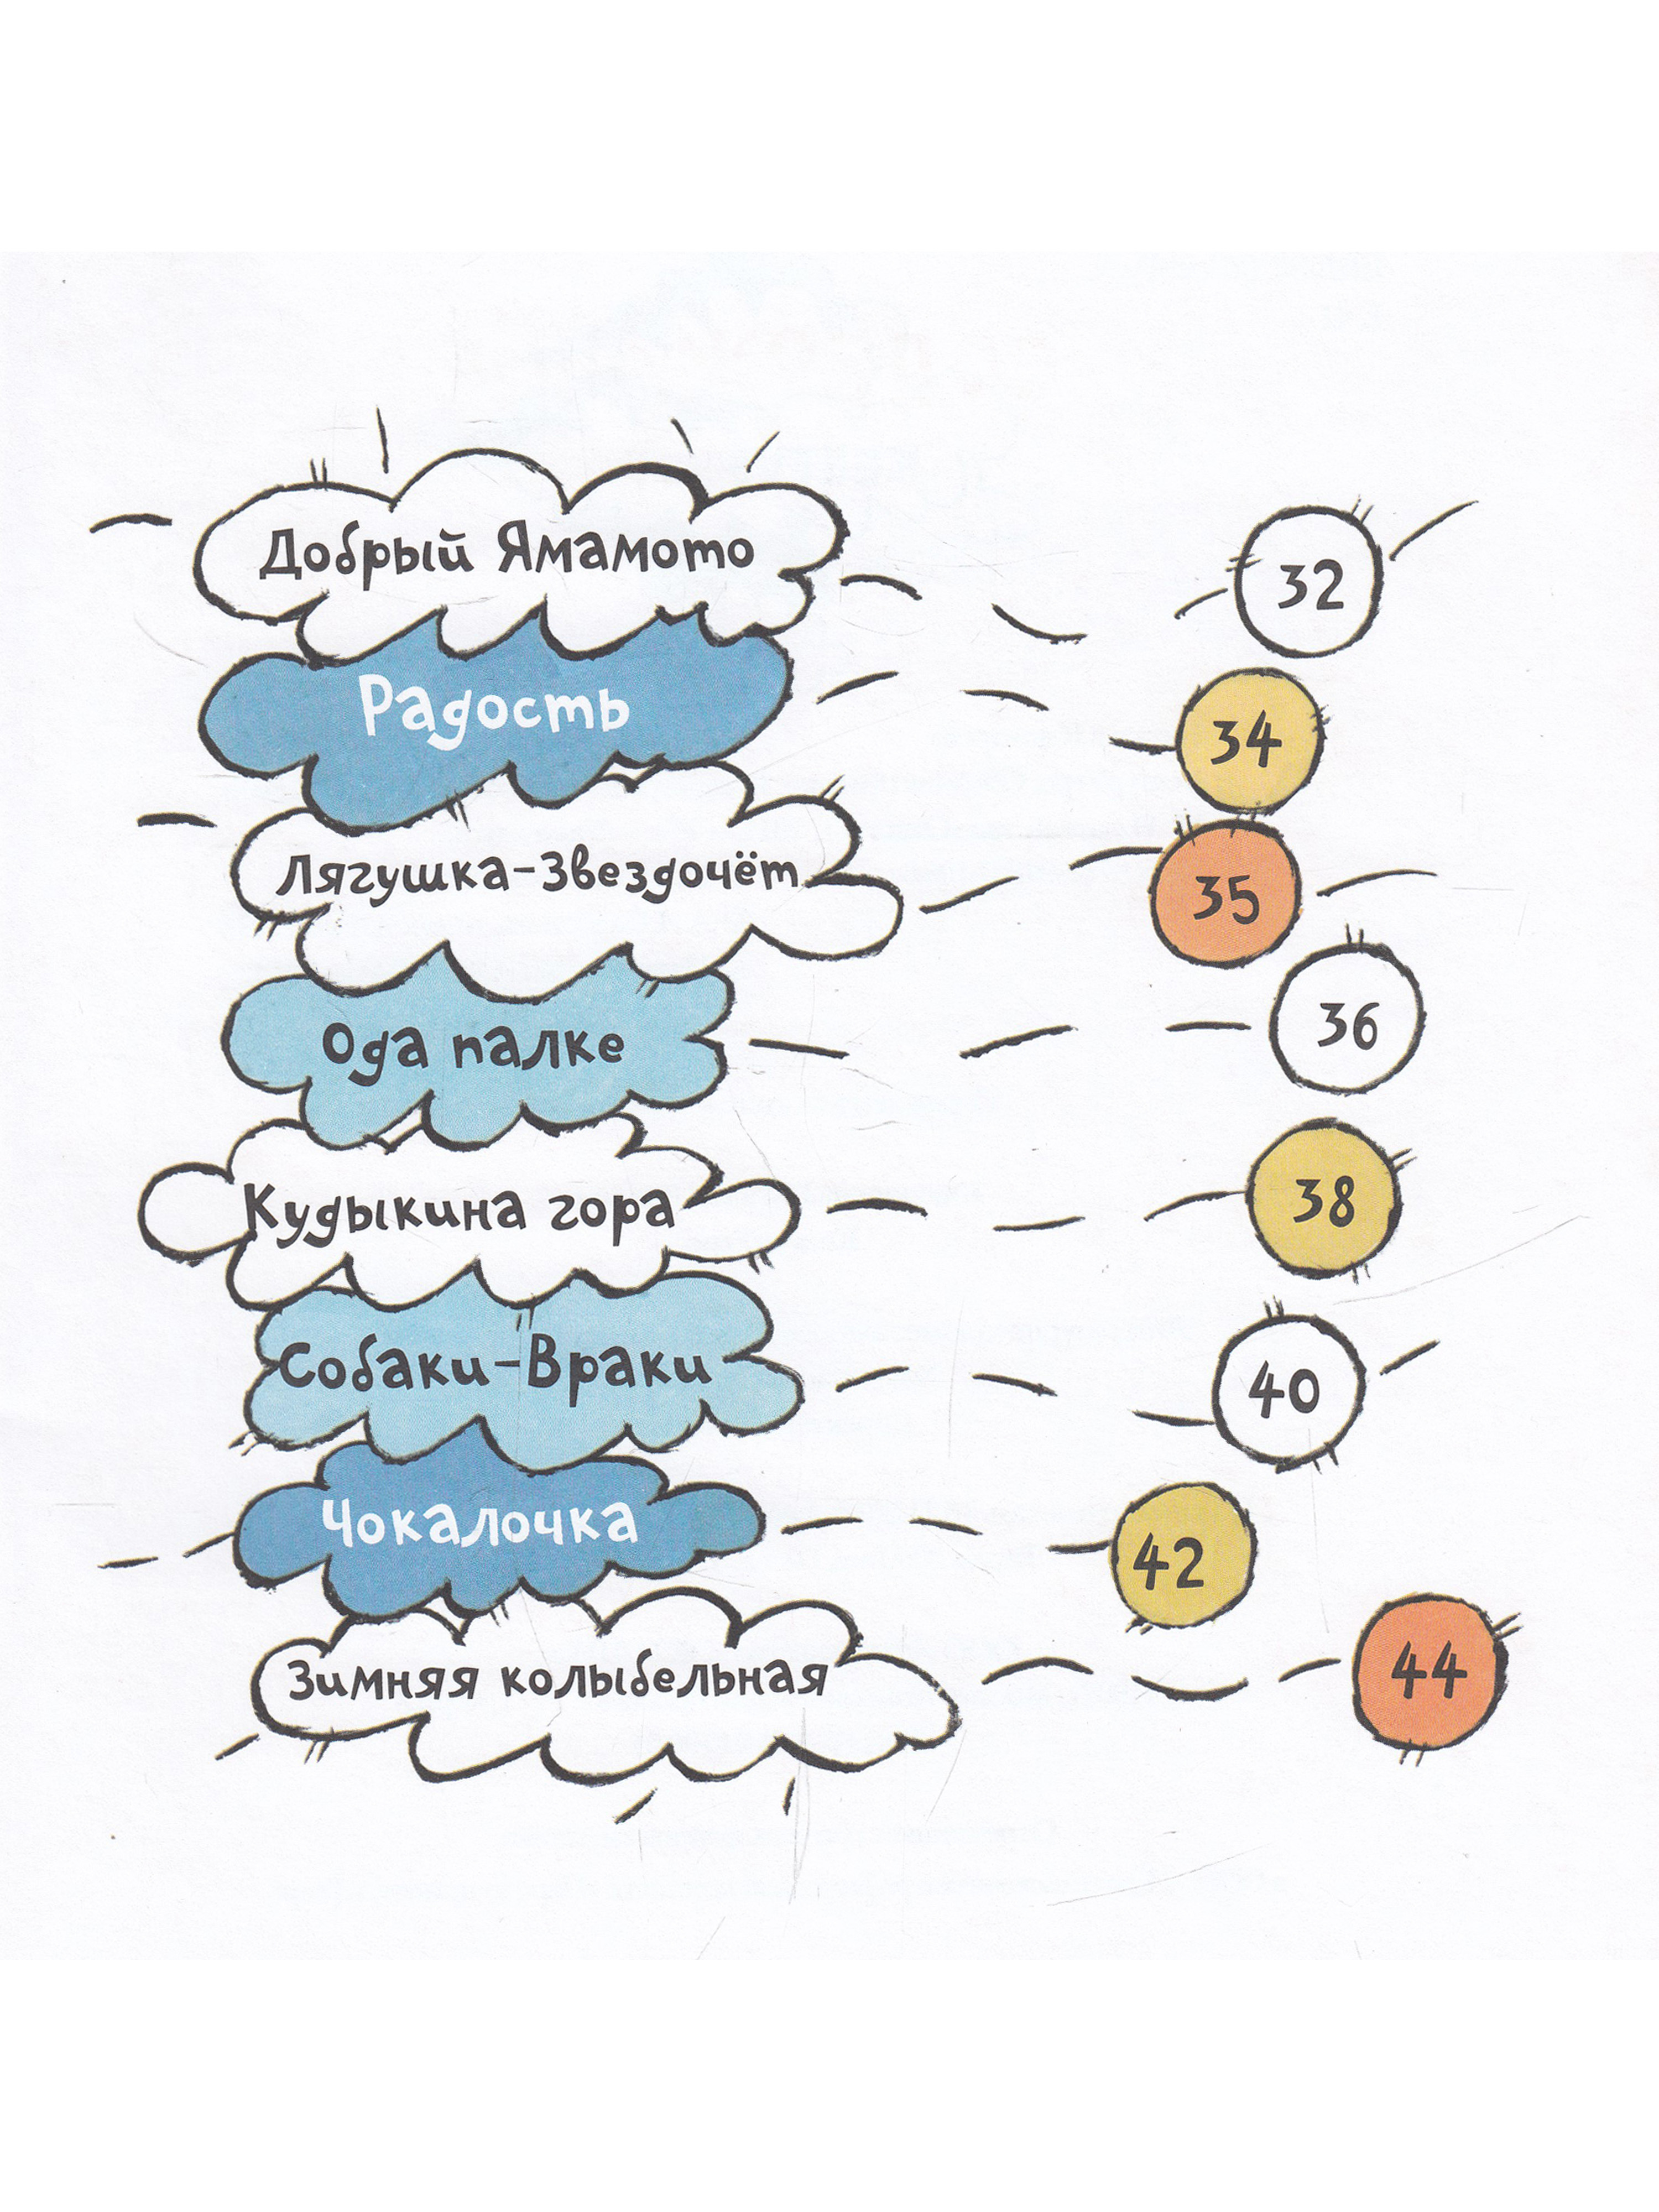 Добрый Ямамото 32
Радость 34
Лягушка-Звездочёт 35
Ода палке 36
Кудыкина гора 38
Собаки-Враки 40
Чокалочка 42
Зимняя колыбельная 44